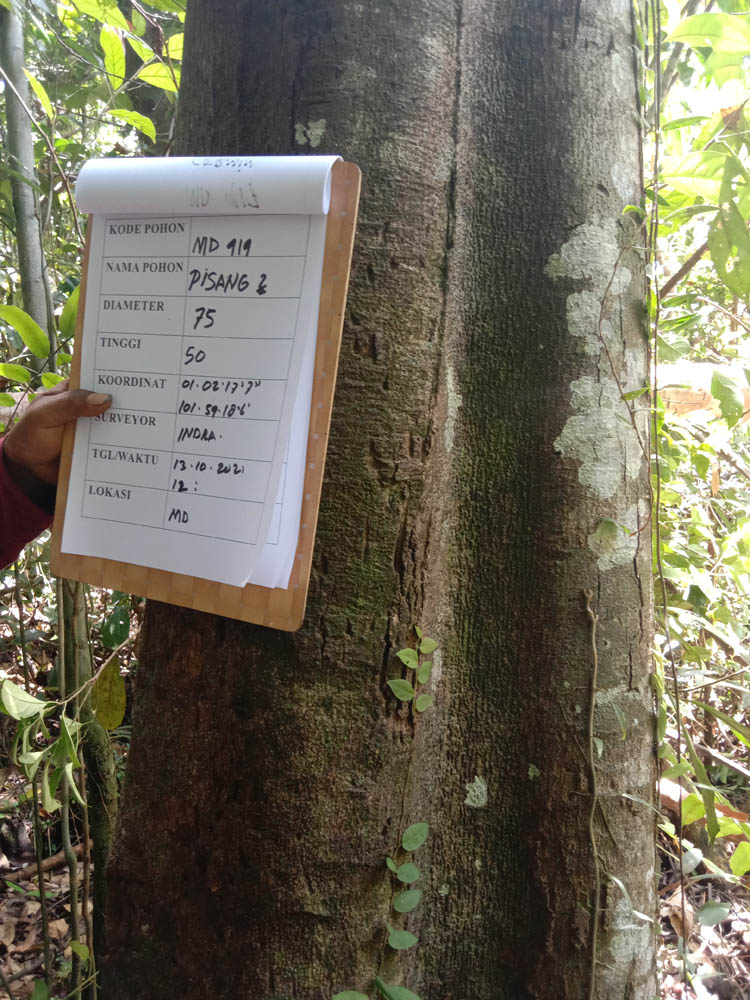 KODE POHON MD 919
NAMA POHON PISANG 2
DIAMETER 75
TINGGI 50
KOORDINAT 01.02'17'7"
101.59.18'6'
SURVEYOR INDRA.
TGL/WAKTU 13.10.2021
12:
LOKASI MD